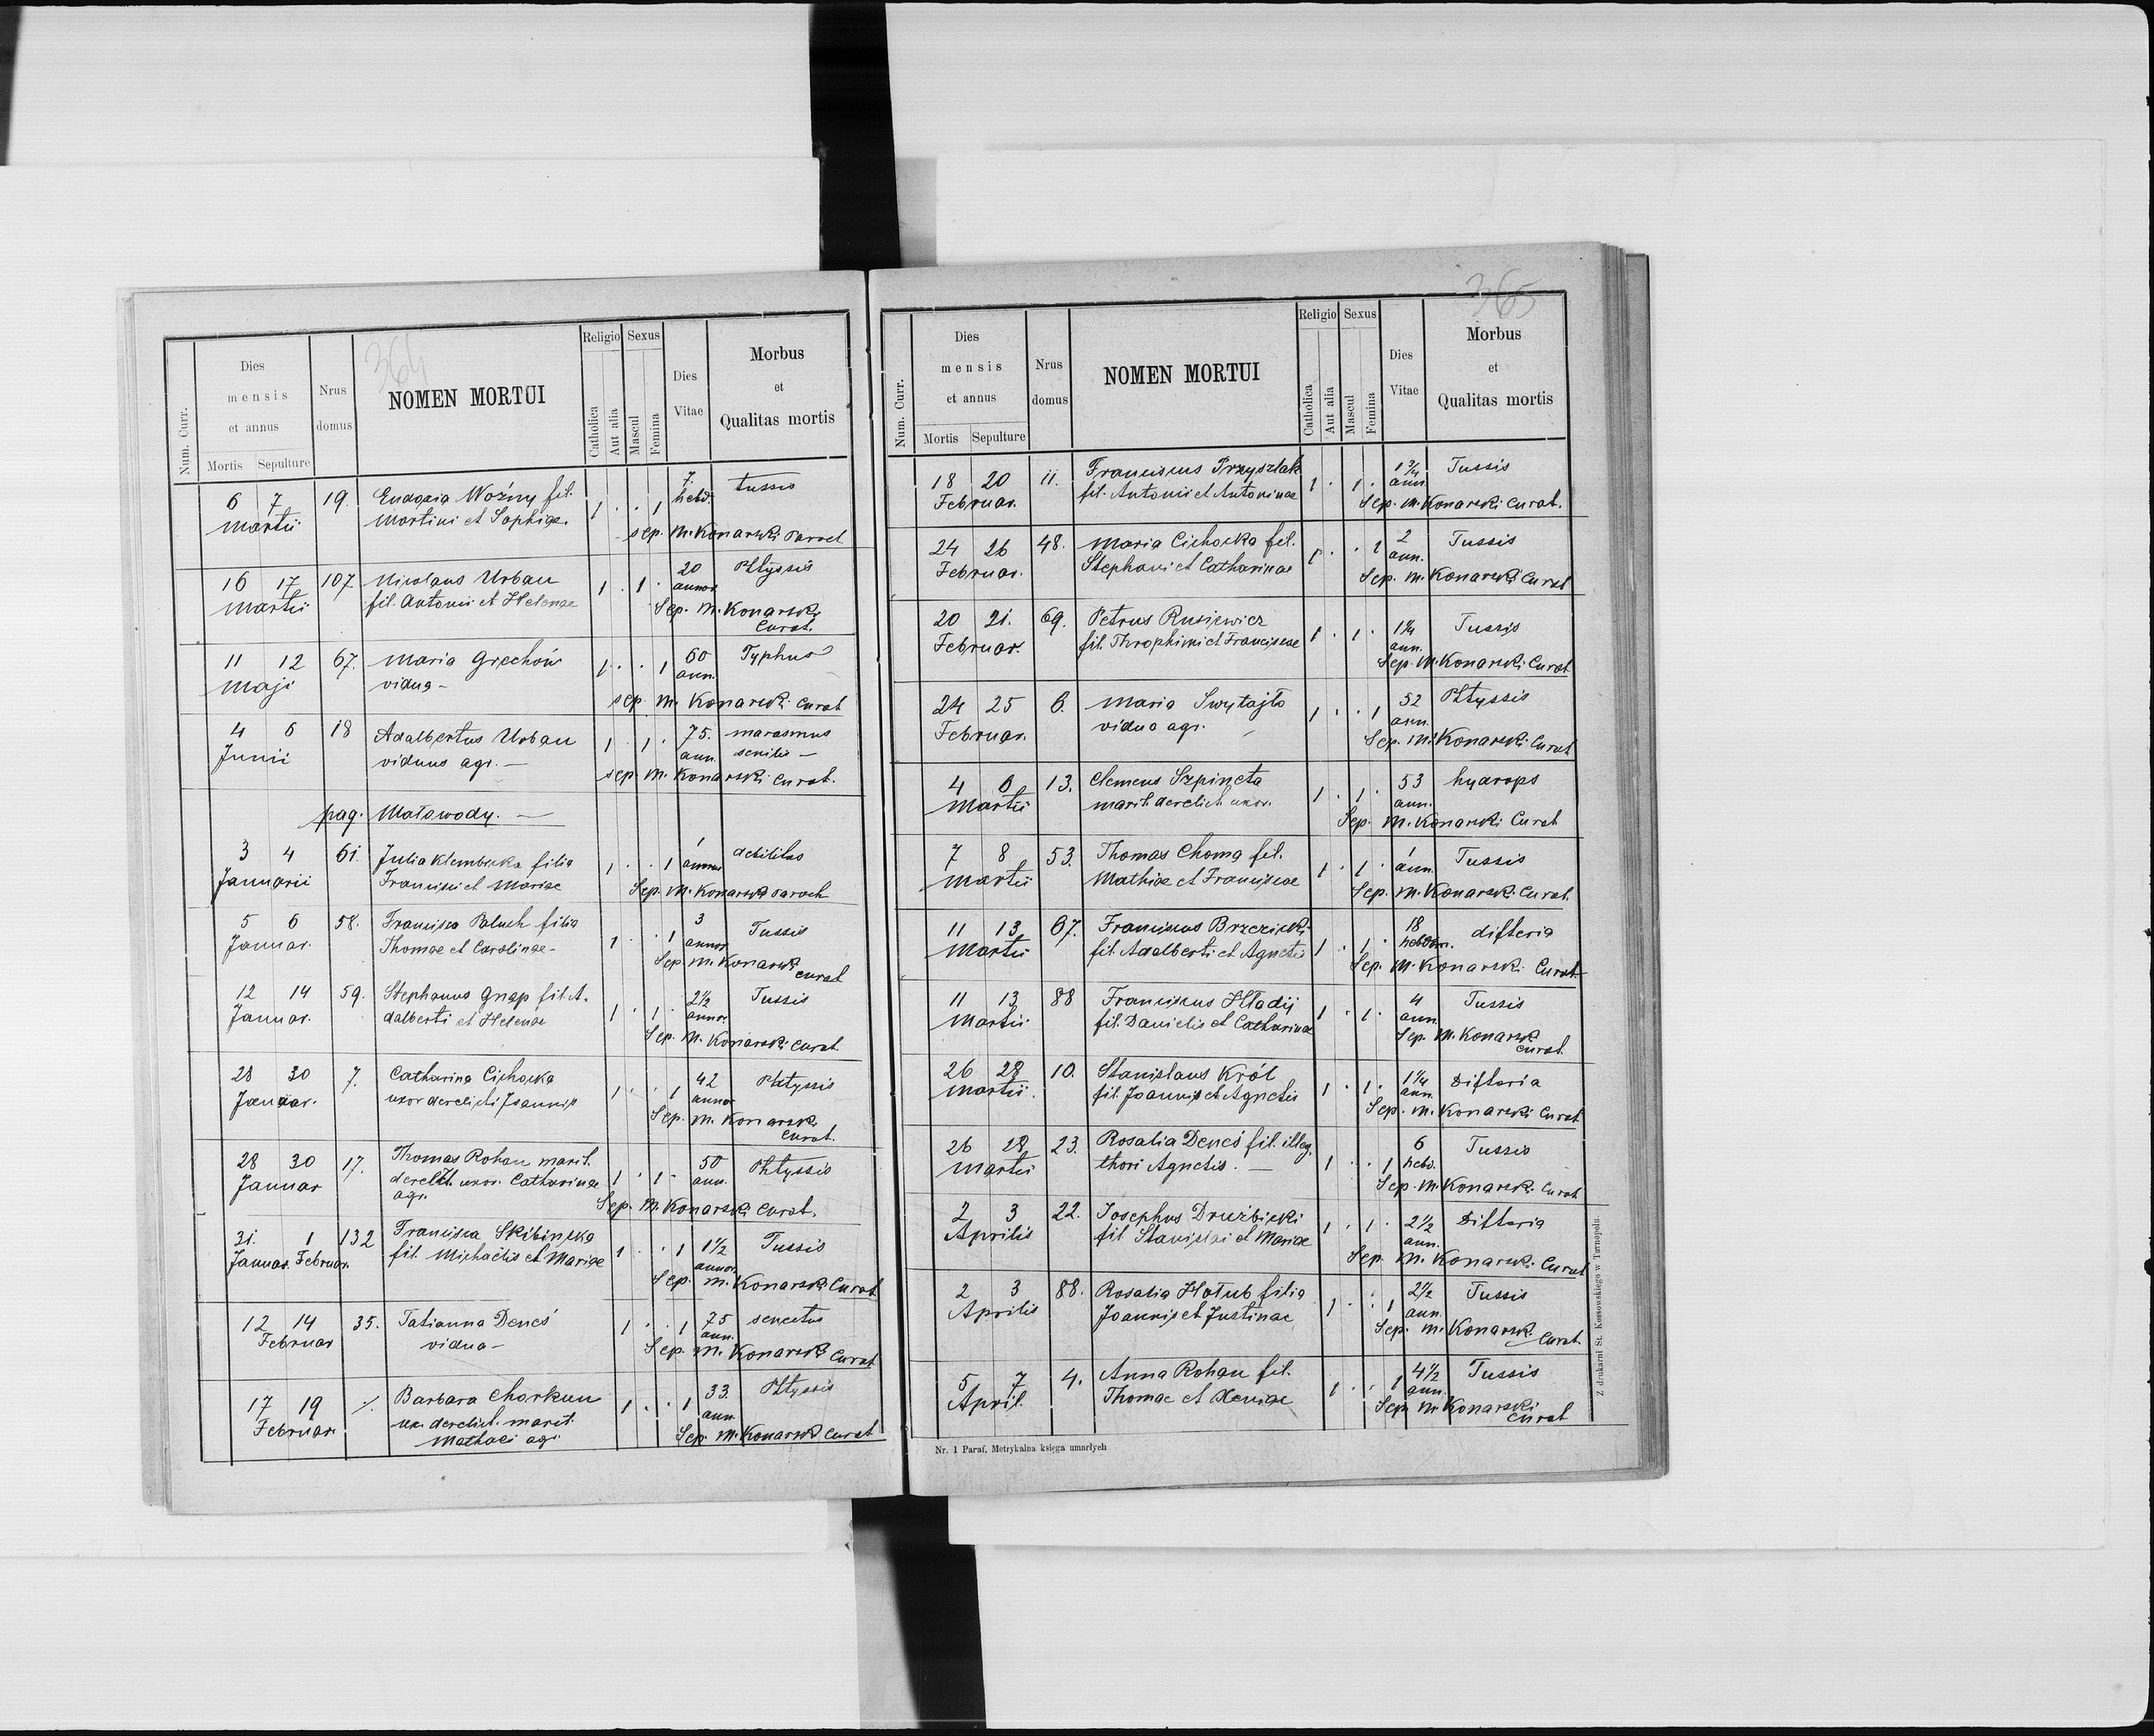 364
Num. Curr.
Dies mensis et annus
Mortis Sepulture
Nrus domus
NOMEN MORTUI
Religio Sexus
Catholica
Aut alia
Mascul
Femina
Dies Vitae
Morbus et Qualitas mortis
6 7 19. Eudoxia Woźny fil. 7. tussis
Martii Martini et Sophiae. 1 . . 1 hebd.
sep. M. Konarski Paroch
16 17 107 Nicolaus Urban 20 Phtyssis
Martii fil. Antonii et Helenae 1 . 1 . annor.
Sep. M. Konarski
Curat.
11 12 67. Maria Grechów 1 . . 1 60 Typhus
Maji vidua - ann.
sep. M. Konarski Curat
4 6 18 Adalbertus Urban 1 . 1 . 75. marasmus
Junii viduus agr. - ann. senilis -
sep. M. Konarski Curat.
pag. Małowody. -
3 4 61. Julia Klembicka filia 1 . . 1 1 debilitas
Januarii Francisci et Mariae annus
Sep. M. Konarski Paroch
5 6 58. Francisca Paluch filia 1 . . 1 3 Tussis
Januar. Thomae et Carolinae - annor.
Sep. M. Konarski
Curat
12 14 59. Stephanus Gnap fil. A- 2½ Tussis
Januar. dalberti et Helenae 1 . 1 . annor.
Sep. M. Konarski Curat
28 30 7. Catharina Cichocka 42 Phtyssis
Januar. uxor derelicti Joannis 1 . . 1 annor
Sep. M. Konarski
Curat.
28 30 17. Thomas Rohan marit. 50 Phtyssis
Januar derelict. uxor. Catharinae 1 . 1 - ann.
agr.
Sep. M. Konarski Curat.
31. 1 132 Francisca Skibińska 1½ Tussis
Januar. Februar. fil. Michaëlis et Mariae 1 . . 1 annor.
Sep. M. Konarski Curat
12 14 35. Tatianna Deneś 1 . . 1 75 senectus
Februar vidua - ann.
Sep. M. Konarski Curat
17 19 Barbara Charkun 1 . . 1 33. Phtyssis
Februar. ux. derelict. marit. ann
Mathaei agr.
Sep. M. Konarski Curat
365
Num. Curr.
Dies mensis et annus
Mortis Sepulture
Nrus domus
NOMEN MORTUI
Religio Sexus
Catholica
Aut alia
Mascul
Femina
Dies Vitae
Morbus et Qualitas mortis
18 20 11. Franciscus Przyszlak 1¾ Tussis
Februar. fil. Antonii et Antoninae 1 . 1 . ann.
Sep. M. Konarski Curat.
24 26 48. Maria Cichocka fil. 1 . . 1 2 Tussis
Februar. Stephani et Catharinae ann.
Sep. M. Konarski Curat
20 21. 69. Petrus Rusiewicz 1¼ Tussis
Februar. fil. Throphimi et Franciscae 1 . 1 . ann.
Sep. M. Konarski Curat
24 25 6. Maria Swytajło 1 . . 1 52 Phtyssis
Februar. vidua agr. - ann.
Sep. M. Konarski Curat
4 6 13. Clemens Szpineta 53 hydrops
Martii marit. derelict. uxor. 1 . 1 . ann.
Sep. M. Konarski Curat
7 8 53. Thomas Choma fil. 1 Tussis
Martii Mathiae et Franciscae 1 . 1 . ann.
Sep. M. Konarski Curat.
11 13 67. Franciscus Brzezicki 18 difteria
Martii fil. Adalberti et Agnetis 1 . 1 . hebdom.
Sep. M. Konarski Curat
11 13 88 Franciscus Hładij 4 Tussis
Martii fil. Danielis et Catharinae 1 . 1 . ann.
Sep. M. Konarski
Curat
26 28 10. Stanislaus Król 1¼ Difteria
Martii. fil. Joannis et Agnetis 1 . 1 . ann.
Sep. M. Konarski Curat
26 28 23. Rosalia Deneś fil. illeg. 6 Tussis
Martii thori Agnetis. - 1 . . 1 hebd.
Sep. M. Konarski Curat
2 3 22. Josephus Drużbicki 2½ Difteria
Aprilis fil Stanislai et Mariae 1 . 1 . ann.
Sep. M. Konarski Curat
2 3 88. Rosalia Hołub filia 2½ Tussis
Aprilis Joannis et Justinae 1 . . 1 ann.
Sep. M. Konarski
Curat
5 7 4. Anna Rohan fil. 4½ Tussis
April. Thomae et Xeniae 1 . . 1 ann.
Sep. M. Konarski
Curat
Nr. 1 Paraf. Metrykalna księga umarłych
Z drukarni St. Kossowskiego w Tarnopolu.